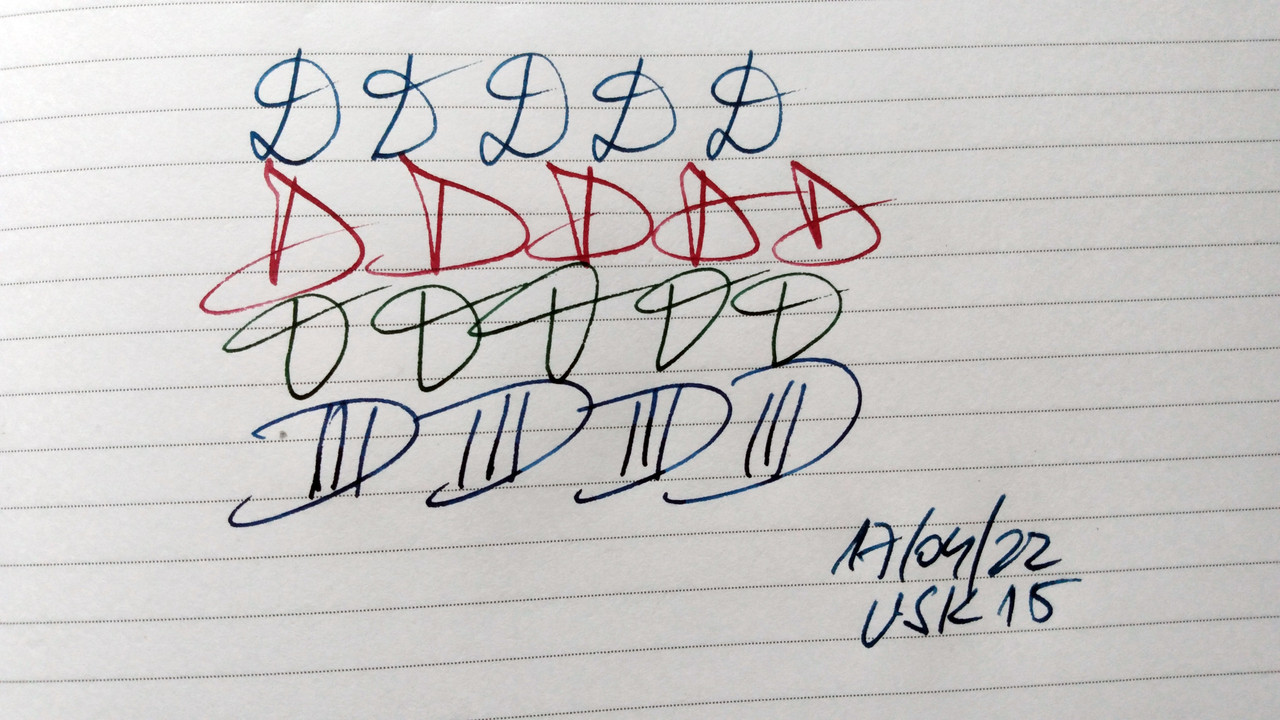 D D D D D
D D D D D
D D D D D
D D D D
17/04/22
USK 15